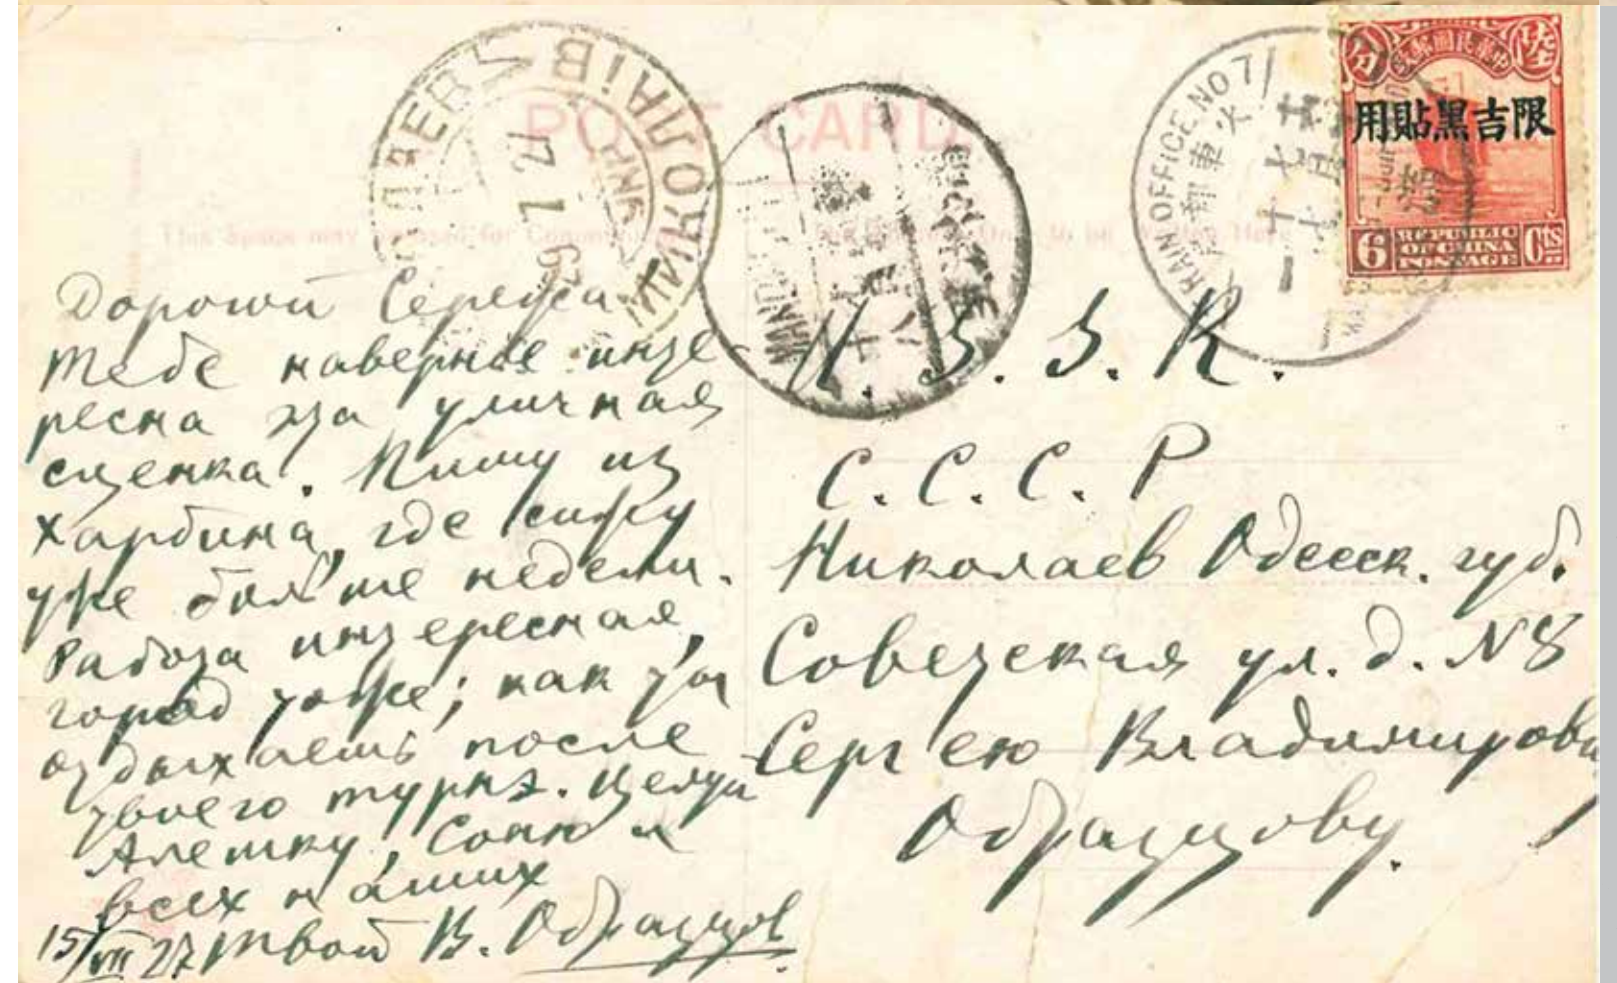 POST CARD
This Space may be used for
Only to be Written Here
МИКОЛАЇВ
29 7 27
TRAIN OFFICE NO 7
火車郵
中華民國郵政
分 陸
限吉黑貼用
6 REPUBLIC OF CHINA POSTAGE Cts
Дорогой Сережа
Тебе наверное инте-
ресна эта уличная
сценка. Пишу из
Харбина, где сижу
уже больше недели.
Работа интересная,
город тоже; как ты
отдыхаешь после
твоего турнэ. Целуй
Алешку, Соню и
всех наших
15/VII 27 Твой В. Образцов
U. S. S. R.
С. С. С. Р
Николаев Одесск. губ.
Советская ул. д. №8
Сергею Владимирови
Образцову.